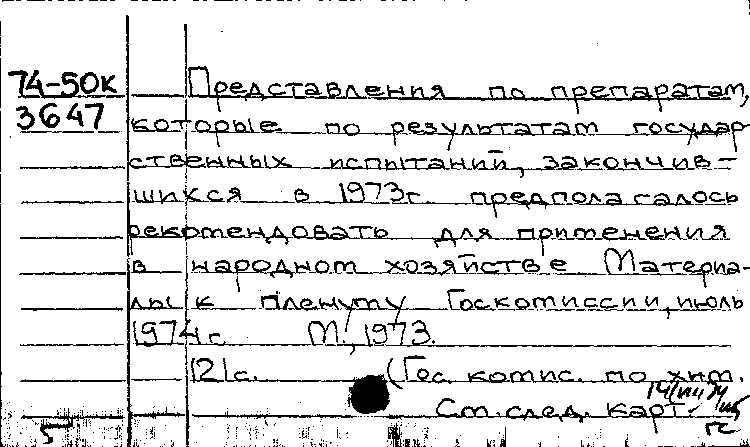 74-50к Представления по препаратам,
3647 которые по результатам государ
ственных испытаний, закончив-
шихся в 1973г. предполагалось
рекомендовать для применения
в народном хозяйстве Материа-
лы к пленуму Госкомиссии, июль
1974 г. М., 1973.
121с. (Гос. комис. по хим.
См. след. карт.